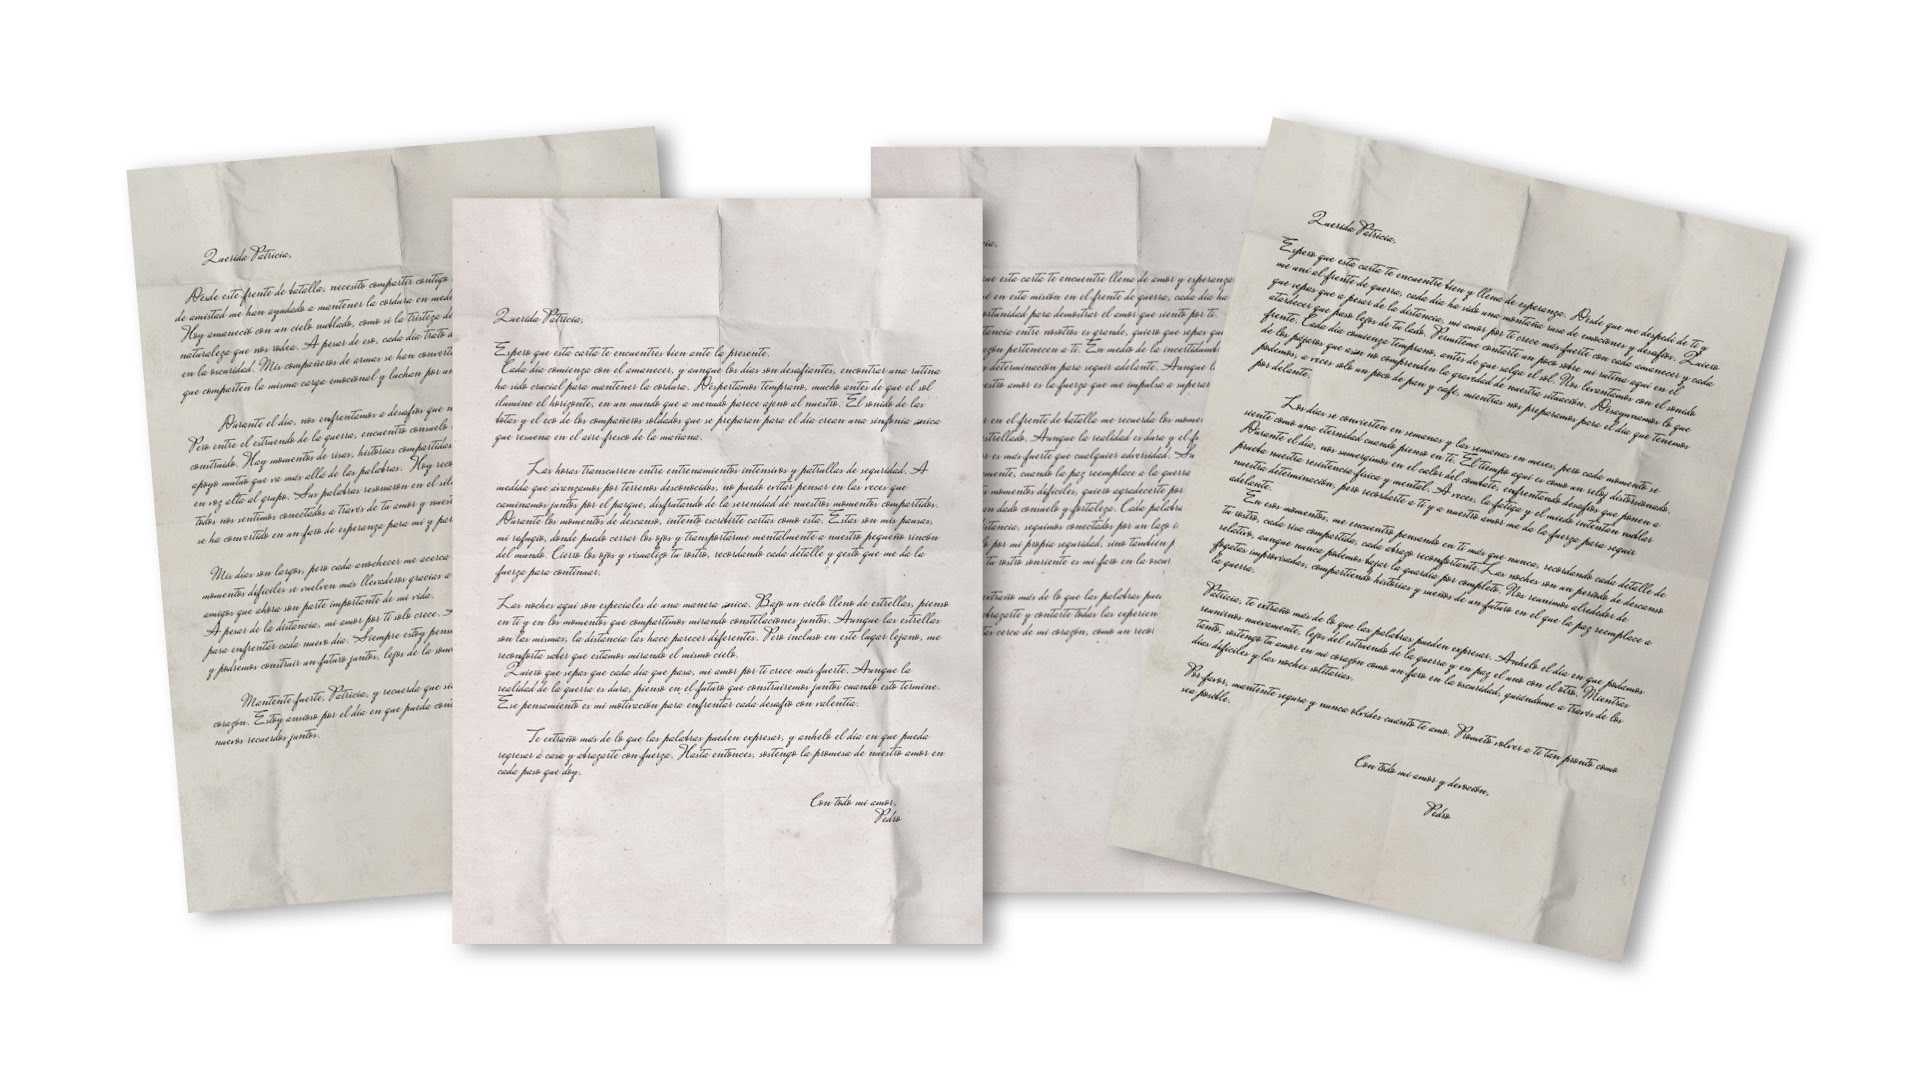 Querida Patricia,
Desde este frente de batalla, necesito compartir contigo
de amistad me han ayudado a mantener la cordura en medi
Hoy amaneció con un cielo nublado, como si la tristeza de
naturaleza que nos rodea. A pesar de eso, cada día trato d
en la oscuridad. Mis compañeros de armas se han convert
que comparten la misma carga emocional y luchan por un
Durante el día, nos enfrentamos a desafíos que n
Pero entre el estruendo de la guerra, encuentro consuelo
construido. Hay momentos de risas, historias compartidas
apoyo mutuo que va más alla de las palabras. Hoy reco
en voz alta al grupo. Sus palabras resonaron en el sil
todos nos sentimos conectados a través de tu amor y nuest
se ha convertido en un faro de esperanza para mí y par
Mis días son largos, pero cada anochecer me acerca
momentos difíciles se vuelven más llevaderos gracias a
amigos que ahora son parte importante de mi vida.
A pesar de la distancia, mi amor por ti solo crece.
para enfrentar cada nuevo día. Siempre estoy pens
y podremos construir un futuro juntos, lejos de la som
Mantente fuerte, Patricia, y recuerda que si
corazón. Estoy ansioso por el día en que pueda con
nuevos recuerdos juntos.
Querida Patricia,
Espero que esta carta te encuentres bien ante la presente.
Cada día comienza con el amanecer, y aunque los días son desafiantes, encontrar una rutina
ha sido crucial para mantener la cordura. Despertamos temprano, mucho antes de que el sol
ilumine el horizonte, en un mundo que a menudo parece ajeno al nuestro. El sonido de las
botas y el eco de los compañeros soldados que se preparan para el día crean una sinfonía única
que resuena en el aire fresco de la mañana.
Las horas transcurren entre entrenamientos intensivos y patrullas de seguridad. A
medida que avanzamos por terrenos desconocidos, no puedo evitar pensar en las veces que
caminamos juntos por el parque, disfrutando de la serenidad de nuestros momentos compartidos.
Durante los momentos de descanso, intento escribirte cartas como esta. Estas son mis pausas,
mi refugio, donde puedo cerrar los ojos y transportarme mentalmente a nuestro pequeño rincón
del mundo. Cierro los ojos y visualizo tu rostro, recordando cada detalle y gesto que me da la
fuerza para continuar.
Las noches aquí son especiales de una manera única. Bajo un cielo lleno de estrellas, pienso
en ti y en los momentos que compartimos mirando constelaciones juntos. Aunque las estrellas
son las mismas, la distancia las hace parecer diferentes. Pero incluso en este lugar lejano, me
reconforta saber que estamos mirando el mismo cielo.
Quiero que sepas que cada día que pasa, mi amor por ti crece más fuerte. Aunque la
realidad de la guerra es dura, pienso en el futuro que construiremos juntos cuando esto termine.
Ese pensamiento es mi motivación para enfrentar cada desafío con valentía.
Te extraño más de lo que las palabras pueden expresar, y anhelo el día en que pueda
regresar a casa y abrazarte con fuerza. Hasta entonces, sostengo la promesa de nuestro amor en
cada paso que doy.
Con todo mi amor,
Pedro
cia,
ue esta carta te encuentre llena de amor y esperanza
e en esta misión en el frente de guerra, cada día ha
ortunidad para demostrar el amor que siento por ti.
tancia entre nosotros es grande, quiero que sepas que
azón pertenecen a ti. En medio de la incertidumb
determinación para seguir adelante. Aunque l
estro amor es la fuerza que me impulsa a superar
r en el frente de batalla me recuerda los mome
strellado. Aunque la realidad es dura y el f
r es más fuerte que cualquier adversidad. Su
mente, cuando la paz reemplace a la guerra
momentos difíciles, quiero agradecerte por
n dado consuelo y fortaleza. Cada palabra
istancia, seguimos conectados por un lazo i
o por mi propia seguridad, sino también p
tu rostro sonriente es mi faro en la oscur
extraño más de lo que las palabras pue
abrazarte y contarte todas las experien
as cerca de mi corazón, como un recor
Querida Patricia,
Espero que esta carta te encuentre bien y llena de esperanza. Desde que me despedí de ti y
me uní al frente de guerra, cada día ha sido una montaña rusa de emociones y desafíos. Quiero
que sepas que a pesar de la distancia, mi amor por ti crece más fuerte con cada amanecer y cada
atardecer que paso lejos de tu lado. Permíteme contarte un poco sobre mi rutina aquí en el
frente. Cada día comienza temprano, antes de que salga el sol. Nos levantamos con el sonido
de los pájaros que aún no comprenden la gravedad de nuestra situación. Desayunamos lo que
podemos, a veces solo un poco de pan y café, mientras nos preparamos para el día que tenemos
por delante.
Los días se convierten en semanas y las semanas en meses, pero cada momento se
siente como una eternidad cuando pienso en ti. El tiempo aquí es como un reloj distorsionado.
Durante el día, nos sumergimos en el calor del combate, enfrentando desafíos que ponen a
prueba nuestra resistencia física y mental. A veces, la fatiga y el miedo intentan nublar
nuestra determinación, pero recordarte a ti y a nuestro amor me da la fuerza para seguir
adelante.
En esos momentos, me encuentro pensando en ti más que nunca, recordando cada detalle de
tu rostro, cada risa compartida, cada abrazo reconfortante. Las noches son un período de descanso
relativo, aunque nunca podemos bajar la guardia por completo. Nos reunimos alrededor de
fogatas improvisadas, compartiendo historias y sueños de un futuro en el que la paz reemplace a
la guerra.
Patricia, te extraño más de lo que las palabras pueden expresar. Anhelo el día en que podamos
reunirnos nuevamente, lejos del estruendo de la guerra y en paz el uno con el otro. Mientras
tanto, sostengo tu amor en mi corazón como un faro en la oscuridad, guiándome a través de los
días difíciles y las noches solitarias.
Por favor, mantente segura y nunca olvides cuánto te amo. Prometo volver a ti tan pronto como
sea posible.
Con todo mi amor y devoción,
Pedro